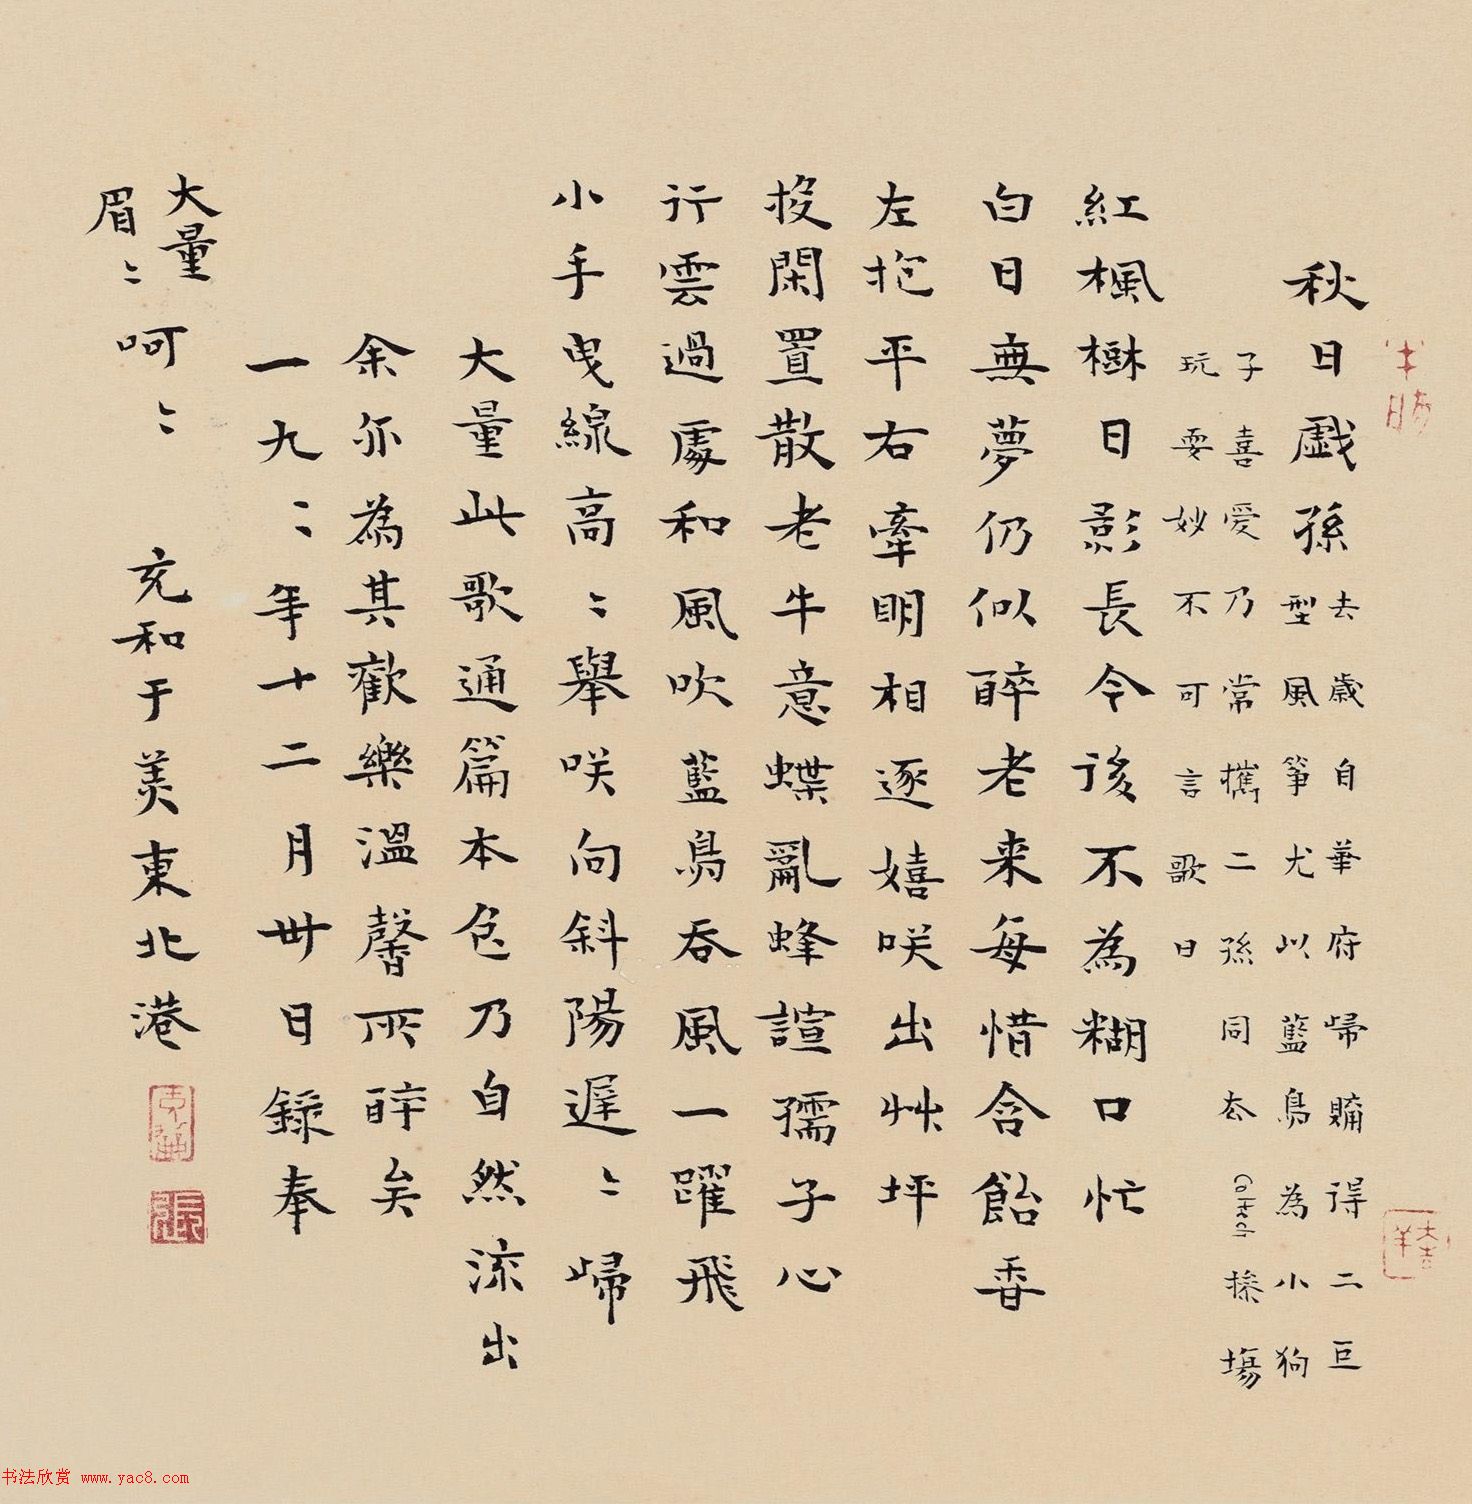 秋日戯孫
去歲自華府歸購得二巨
型風箏尤以藍鳥為小狗
子喜爱乃常攜二孫同去
操場
玩耍妙不可言歌曰
紅楓樹日影長令後不為糊口忙
白日無夢仍似醉老来每惜含飴香
左抱平右牽明相逐嬉咲出艸坪
投閑置散老牛意蝶亂蜂諠孺子心
行雲過處和風吹藍鳥吞風一躍飛
小手曳線高〻舉咲向斜陽遲〻歸
大量此歌通篇本色乃自然流出
余亦為其歡樂溫馨所醉矣
一九〻年十二月卅日錄奉
大量
眉〻呵〻
充和于美東北港
張
书法欣赏 www.yac8.com